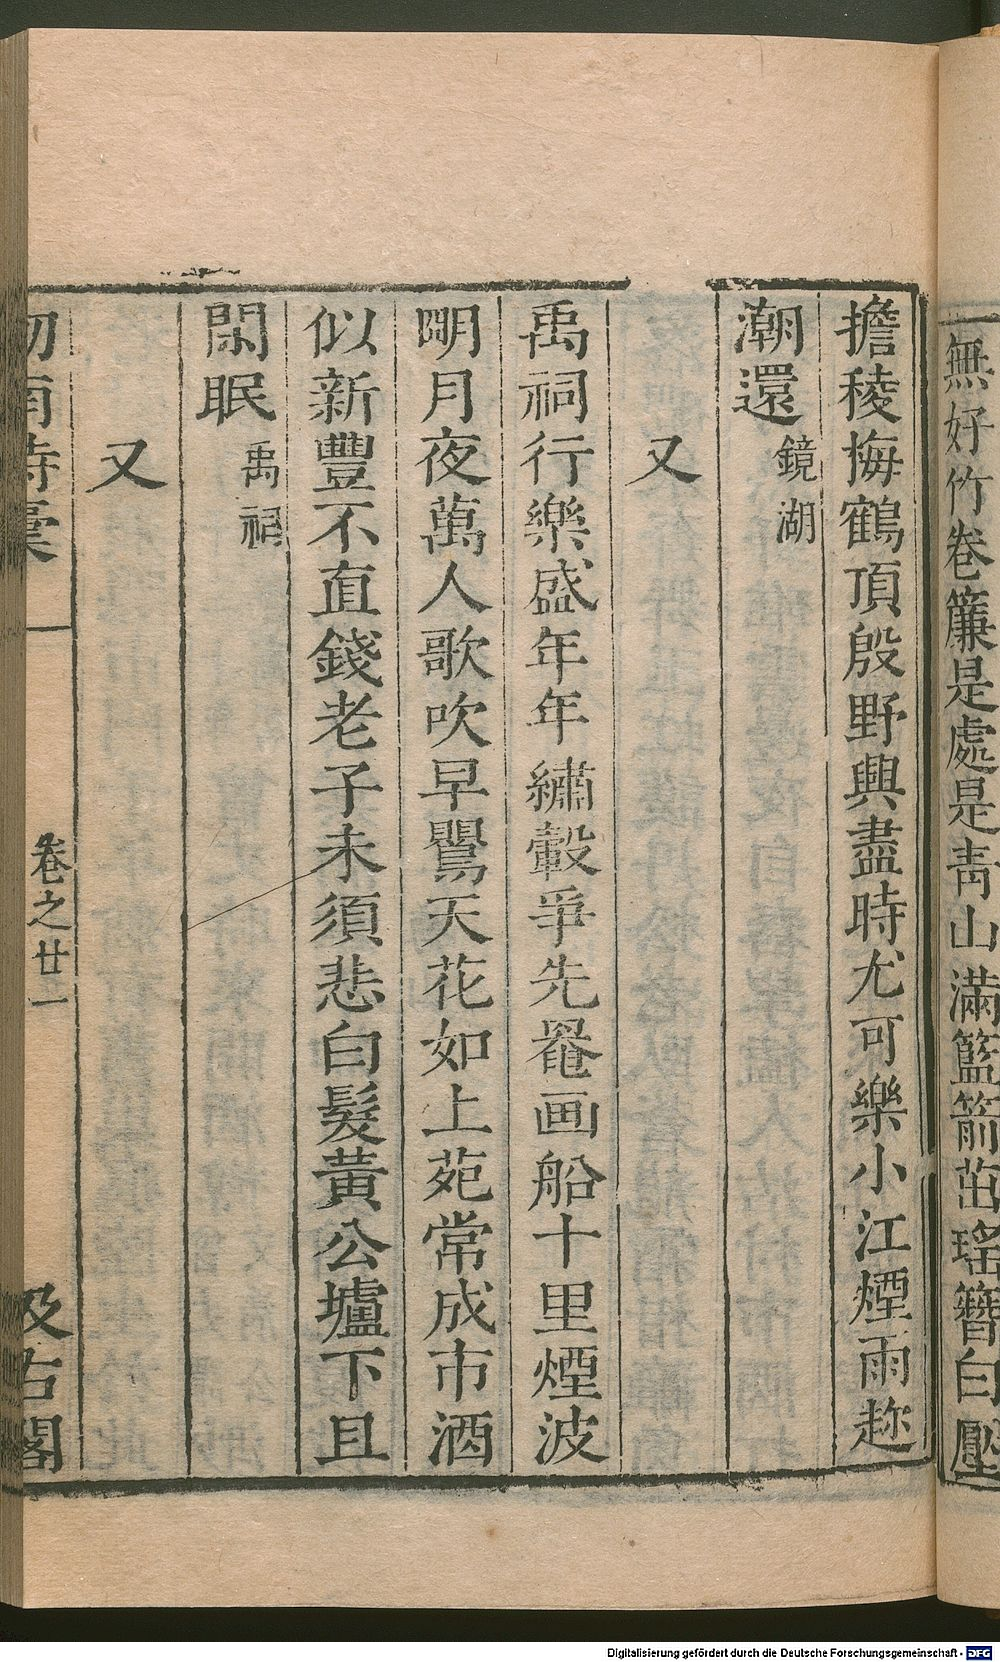 無好竹卷簾是處是靑山滿籃箭茁瑤簪白壓
擔稜梅鶴頂殷野興盡時尤可樂小江煙雨趂
潮還 鏡湖
又
禹祠行樂盛年年繡轂爭先罨画船十里煙波
明月夜萬人歌吹早鶯天花如上苑常成市酒
似新豐不直錢老子未須悲白髮黃公壚下且
閑眠 禹祠
又
劍南詩稾 卷之廿一 汲古閣
Digitalisierung gefördert durch die Deutsche Forschungsgemeinschaft - DFG